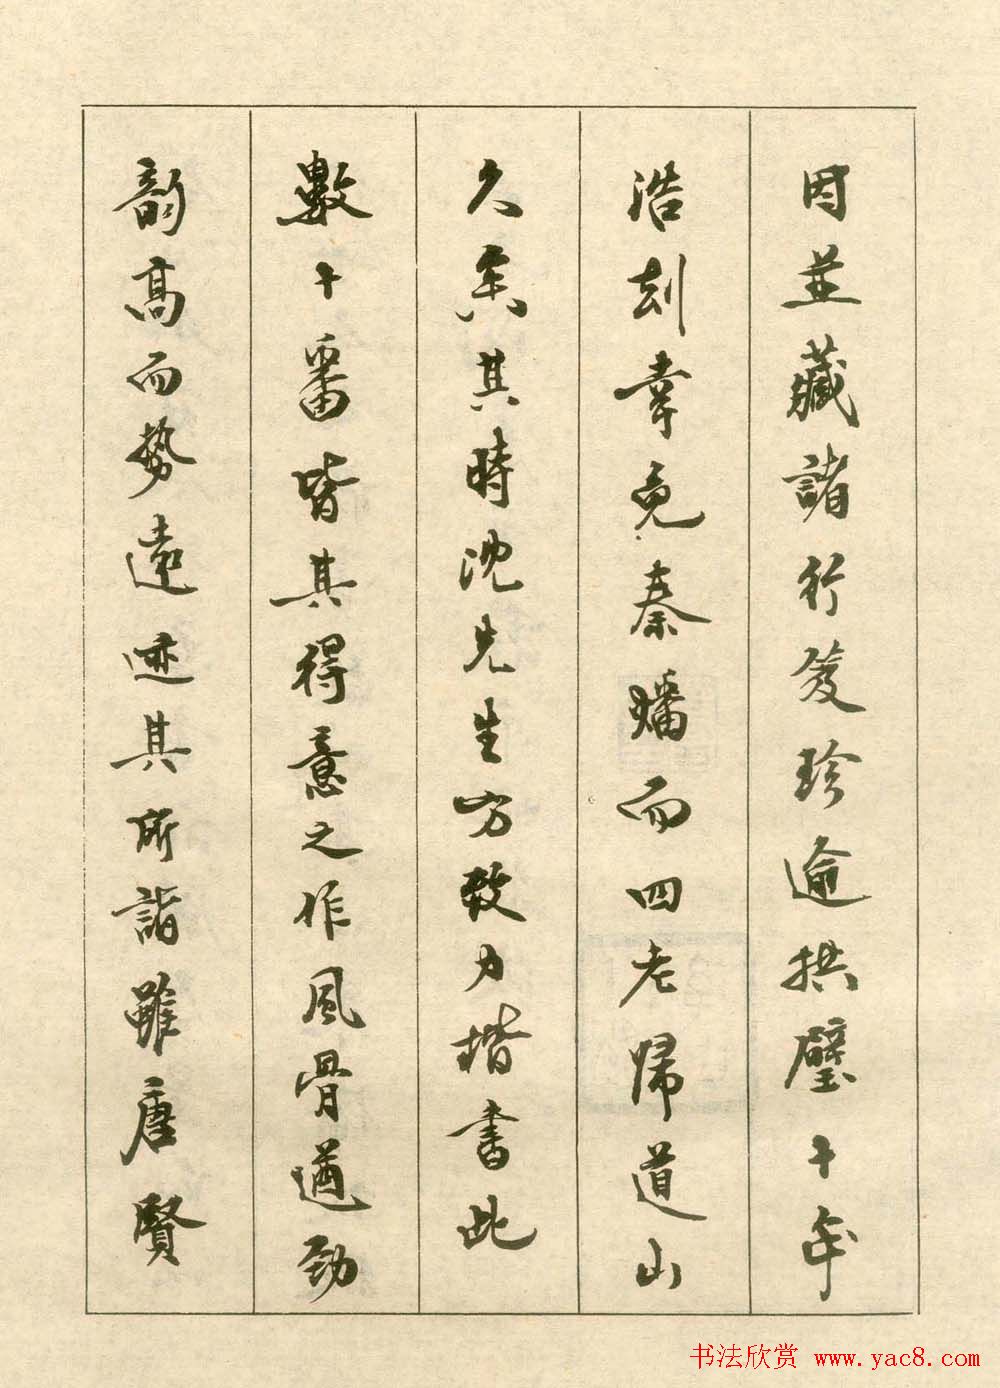 因並藏諸行笈珍逾拱璧十年
浩刦幸免秦燔而四老歸道山
久矣其時沈先生方致力楷書此
數十番皆其得意之作風骨遒勁
韵高而勢遠迹其所詣雖唐賢
书法欣赏 www.yac8.com